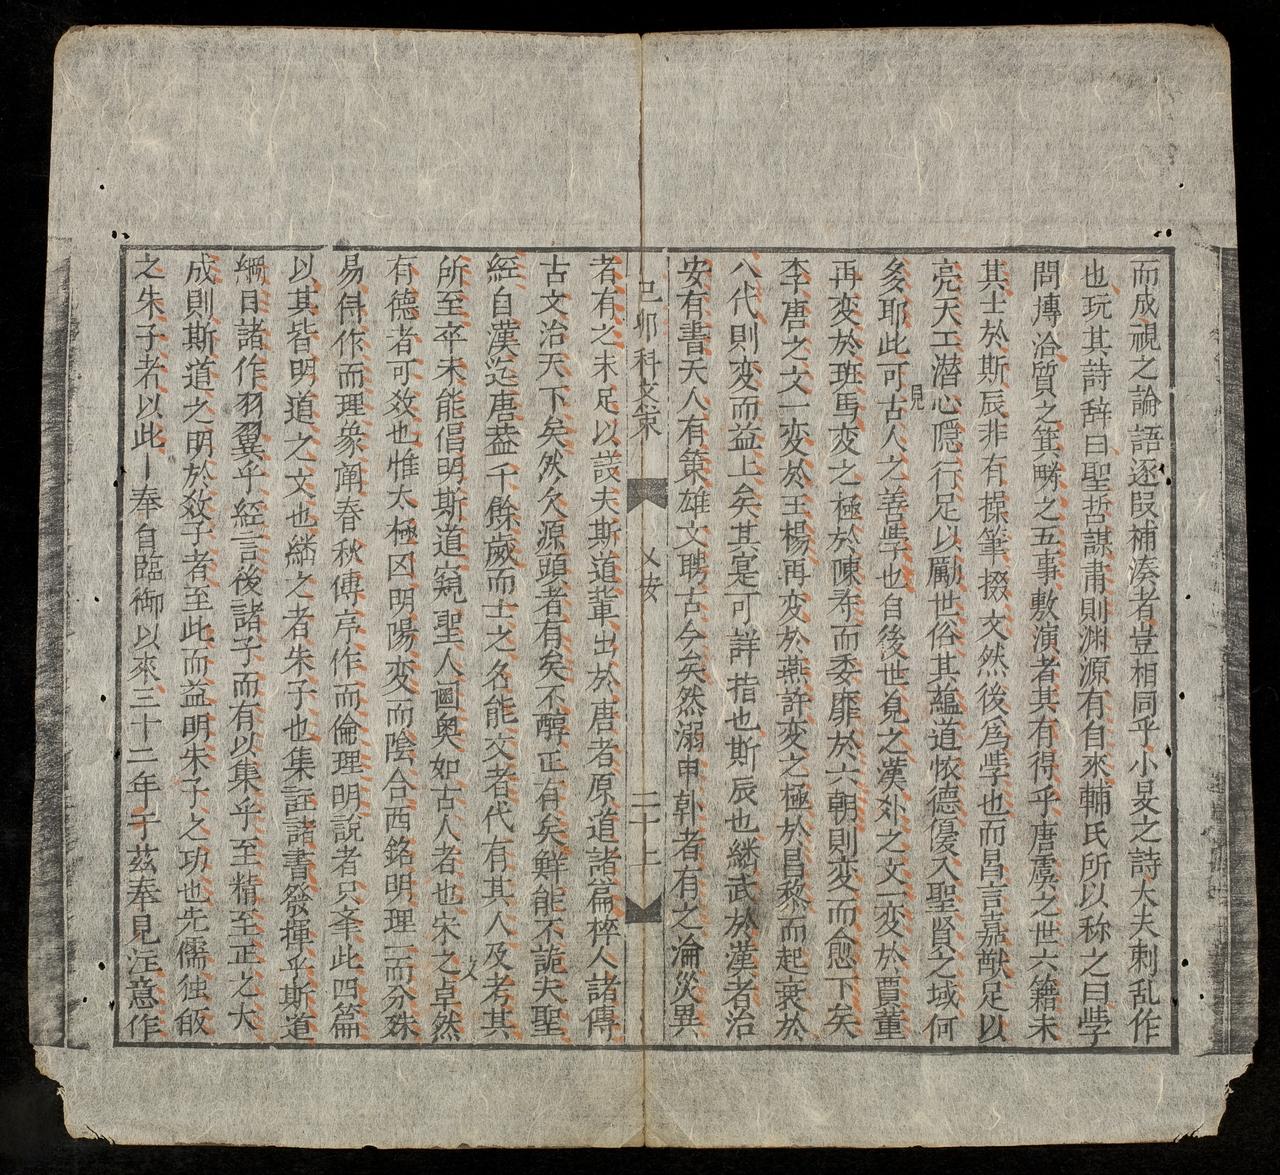 而成視之論語逐段補湊者豈相同乎小旻之詩大夫刺乱作
也玩其詩辞曰聖哲謀肅則渊源有自來輔氏所以称之曰斈
問博洽質之箕疇之五事敷演者其有得乎唐虞之世六籍未
其士於斯辰非有操筆掇文然後为斈也而昌言嘉猷足以
亮天工潜心隠行足以勵世俗其蕴道恢德優入聖賢之域何
見
多耶此可古人之善斈也自後世見之漢外之文一变於賈董
再变於班馬变之極於陳寿而委靡於六朝則变而愈下矣
李唐之文一変於王楊再変於燕許変之極於昌黎而起衰於
八代則変而益上矣其寔可詳指也斯辰也継武於漢者治
安有書天人有策雄文聘古今矣然溺申韩者有之淪災異
己卯科文策
乂安
二十上
者有之未足以談夫斯道軰出於唐者原道諸篇稡人諸傳
古文治天下矣然欠源頭者有矣不醇正有矣鮮能不詭夫聖
經自漢迄唐葢千餘歲而士之名能文者代有其人及考其
所至卒未能倡明斯道窺聖人閫奥如古人者也宋之卓然
文
有德者可效也惟太極図明陽変而陰合西銘明理一而分殊
易傳作而理象闡春秋傳序作而倫理明說者只峯此四篇
以其皆明道之文也継之者朱子也集註諸書發揮乎斯道
綱目諸作羽翼乎經言後諸子而有以集乎至精至正之大
成則斯道之明於效子者至此而益明朱子之功也先儒独皈
之朱子者以此奉自臨御以來三十二年于茲奉見注意作